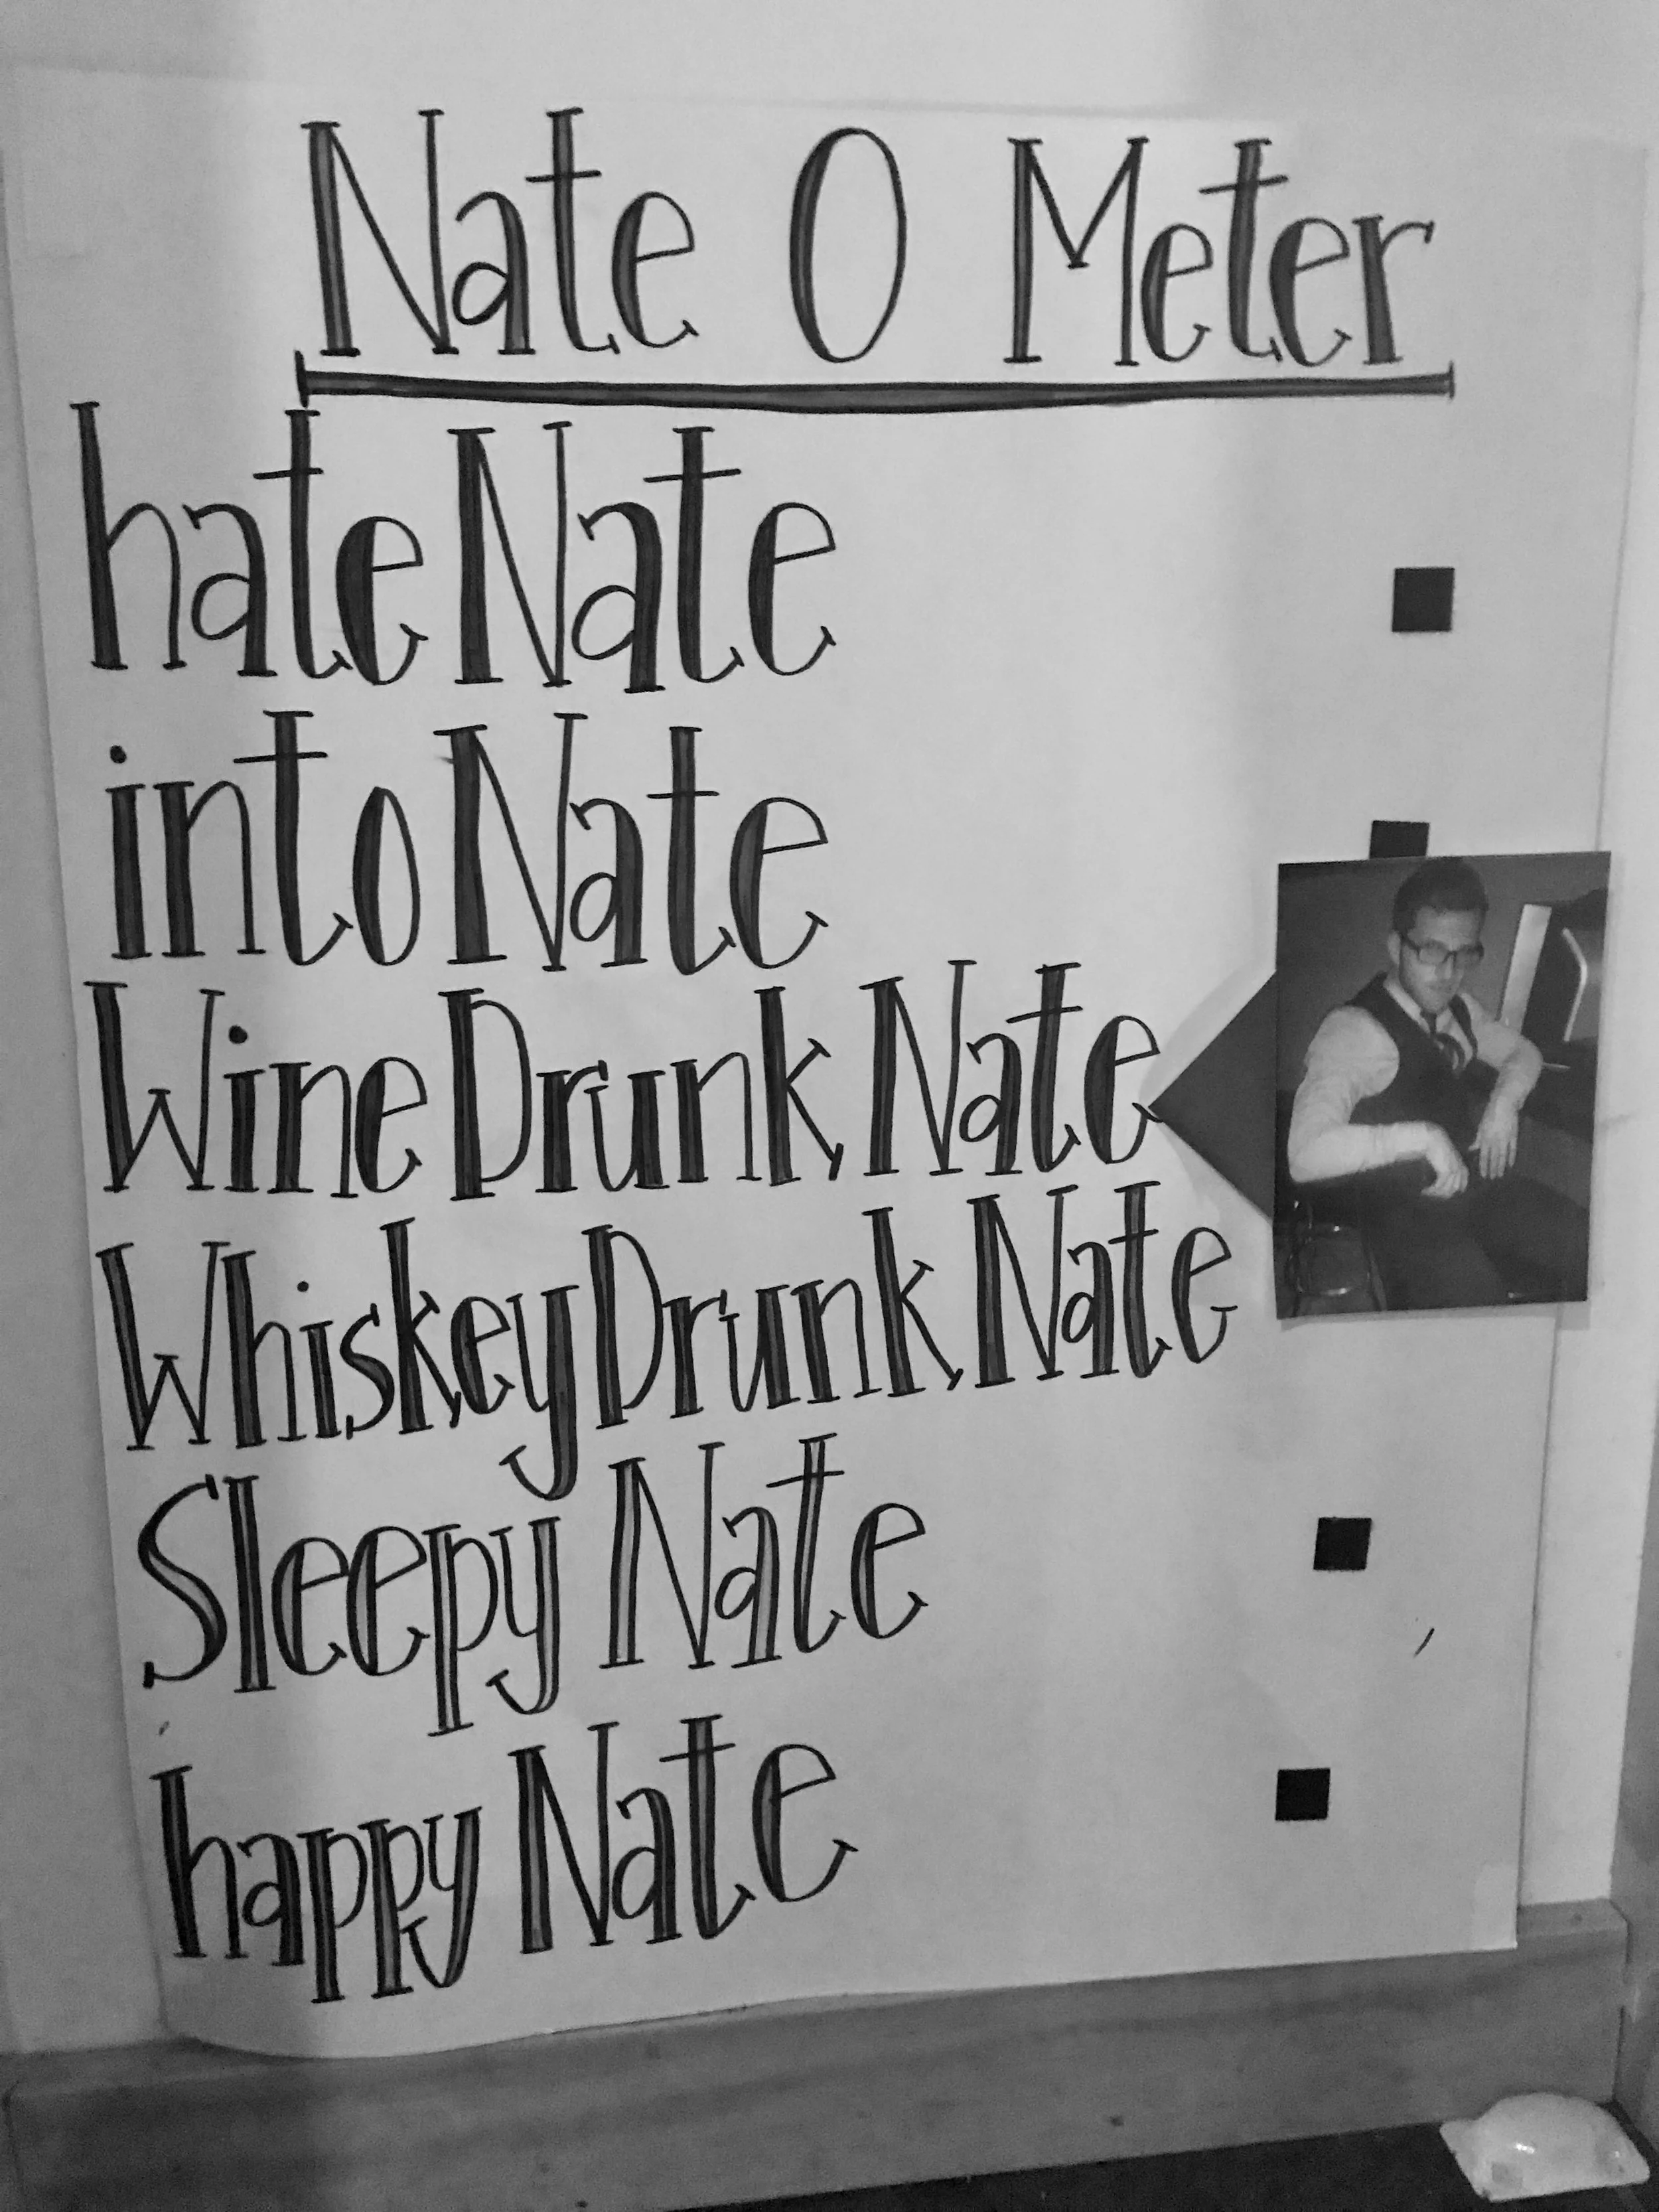 Nate O Meter
hate Nate
into Nate
Wine Drunk Nate
Whiskey Drunk Nate
Sleepy Nate
happy Nate